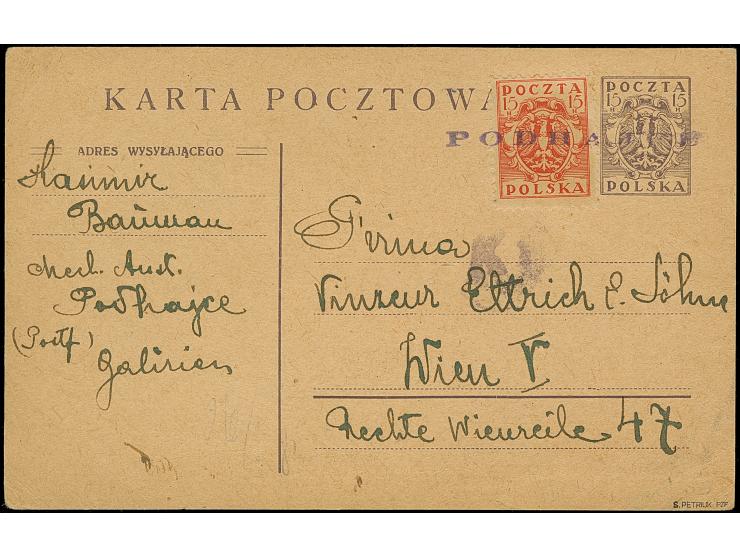 KARTA POCZTOWA
POCZTA
15 15
H H
POLSKA
POCZTA
15 15
H H
POLSKA
PODHAJCE
ADRES WYSYŁAJĄCEGO
Kasimir
Bauman
Mech. Anst.
Podhajce
(Postf)
Galizien
Firma
Vinzeur Eltrich & Söhne
Wien V
Rechte Wienzeile 47
S. PETRIUK PZF